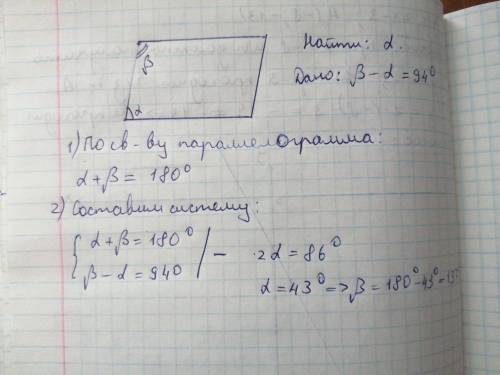 Найти: α.
β
Дано: β - α = 94°
α
1) По св-ву параллелограмма:
α + β = 180°
2) Составим систему:
{ α + β = 180° | -
β - α = 94°
2α = 86°
α = 43° => β = 180° - 43° =